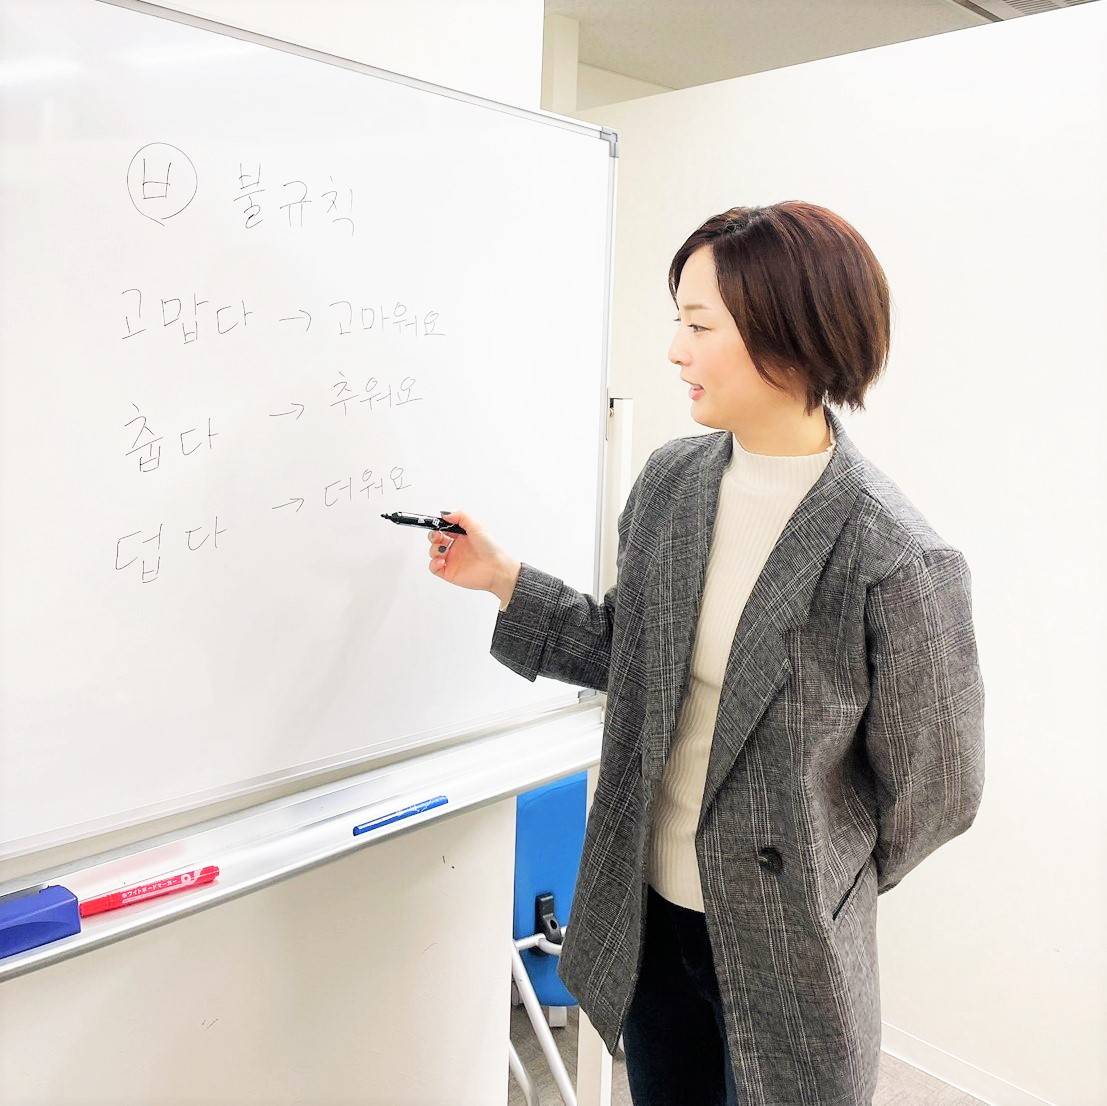 ㅂ 불규칙
고맙다 → 고마워요
춥다 → 추워요
덥다 → 더워요
ホワイトボードマーカー